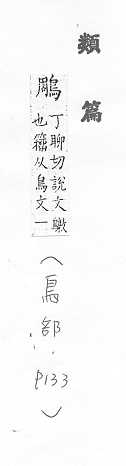 類篇
鵰 丁聊切說文鷻
也籀从鳥文一
(鳥部 p133)